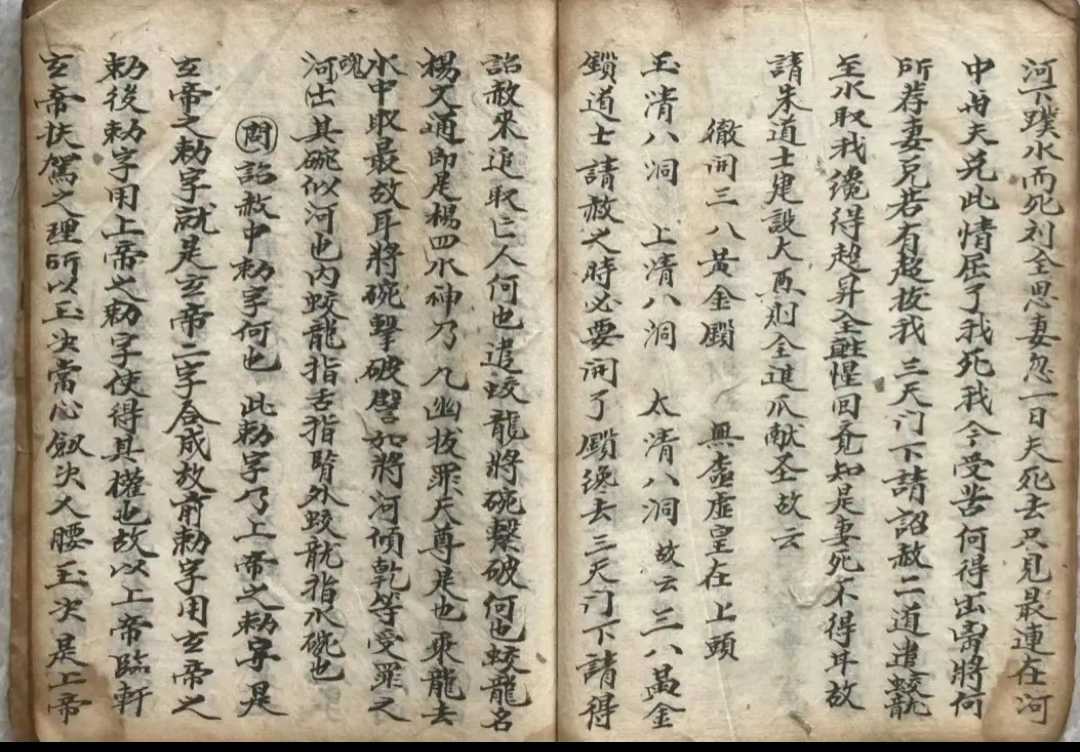 河下蹼水而死刘全思妻忽一日夫死去只見最連在河
中毋夫兄此情屈了我死我今受苦何得出离將何
所荐妻見若有超抜我三天门下請詔赦二道遣蛟龍
至水取我纔得超昇全醒惺回竟知是妻死不得耳故
請朱道士建設大再刘全進爪献圣故云
徹開三八黃金鎖　無盡虛皇在上頭
玉清八洞　上清八洞　太清八洞　故云三八萬金
鎖道士請赦之時必要開了鎖纔去三天门下請得
詔赦來追取亡人何也遣蛟龍將碗擊破何也蛟龍名
楊文通即是楊四水神乃九幽拔罪天尊是也乘龍去
水中取最故耳將碗擊破譬如將河傾乾等受罪之
魂
河出其碗似河也内蛟龍指舌指腎外蛟龍指水碗也
問詔赦中勅字何也　此勅字乃上帝之勅字是
玄帝之勅字就是玄帝二字合成故前勅字用玄帝之
勅後勅字用上帝之勅字使得其權也故以上帝臨軒
玄帝扶駕之理所以玉次當心劔次入腰玉次是上帝